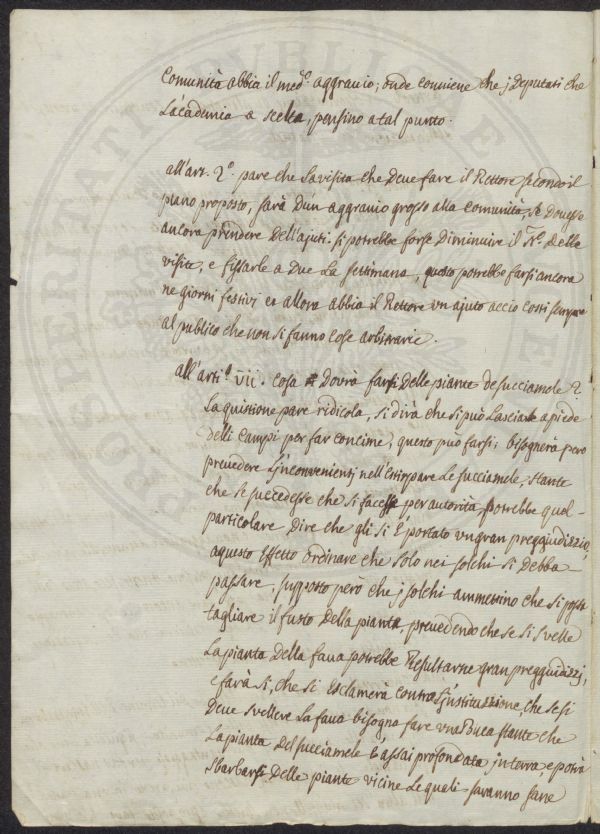 Comunità abbia il med.º aggravio; onde conviene che j Deputati che
L'academia a scelta, pensino a tal punto.
all'art. 2.º pare che la visita che Deve fare il Rettore secondo il
piano proposto, sarà D'un aggravio grosso alla Comunità, se Dovesse
ancora prendere Dell'ajuti. si potrebbe forse Diminuire il N.º Delle
visite, e fissarle a Due La settimana, questo potrebbe farsi ancora
ne giorni festivi ed allora abbia il Rettore un ajuto accio costi sempre
al publico che non si fanno cose arbitrarie.
all'arti.º VII. Cosa Dovrà farsi Delle piante De succiamele?
La quistione pare ridicola, si dirà che si può Lasciarle a piede
Delli Campi per far concime, questo può farsi; bisognerà però
prevedere L'inconvenienti nell'estirpare Le succiamele, stante
che se succedesse che si facesse per autorità potrebbe qual-
particolare Dire che gli si è portato un gran preggiudizzio,
a questo effetto ordinare che solo nei solchi si Debba
passare, supposto però che j solchi ammettino che si possi
tagliare il fusto Della pianta, prevedendo che se si svelle
La pianta Della fava potrebbe Resultarne gran preggiudizzj,
e farà si, che si esclamerà contro L'instituzzione, che se si
Deve svellere La fava bisogna fare una Buca stante che
La pianta Del succiamele è assai profondata in terra, e potrà
Sbarbarsi Delle piante vicine Le quali saranno sane
PROSPERITATI PUBLICAE